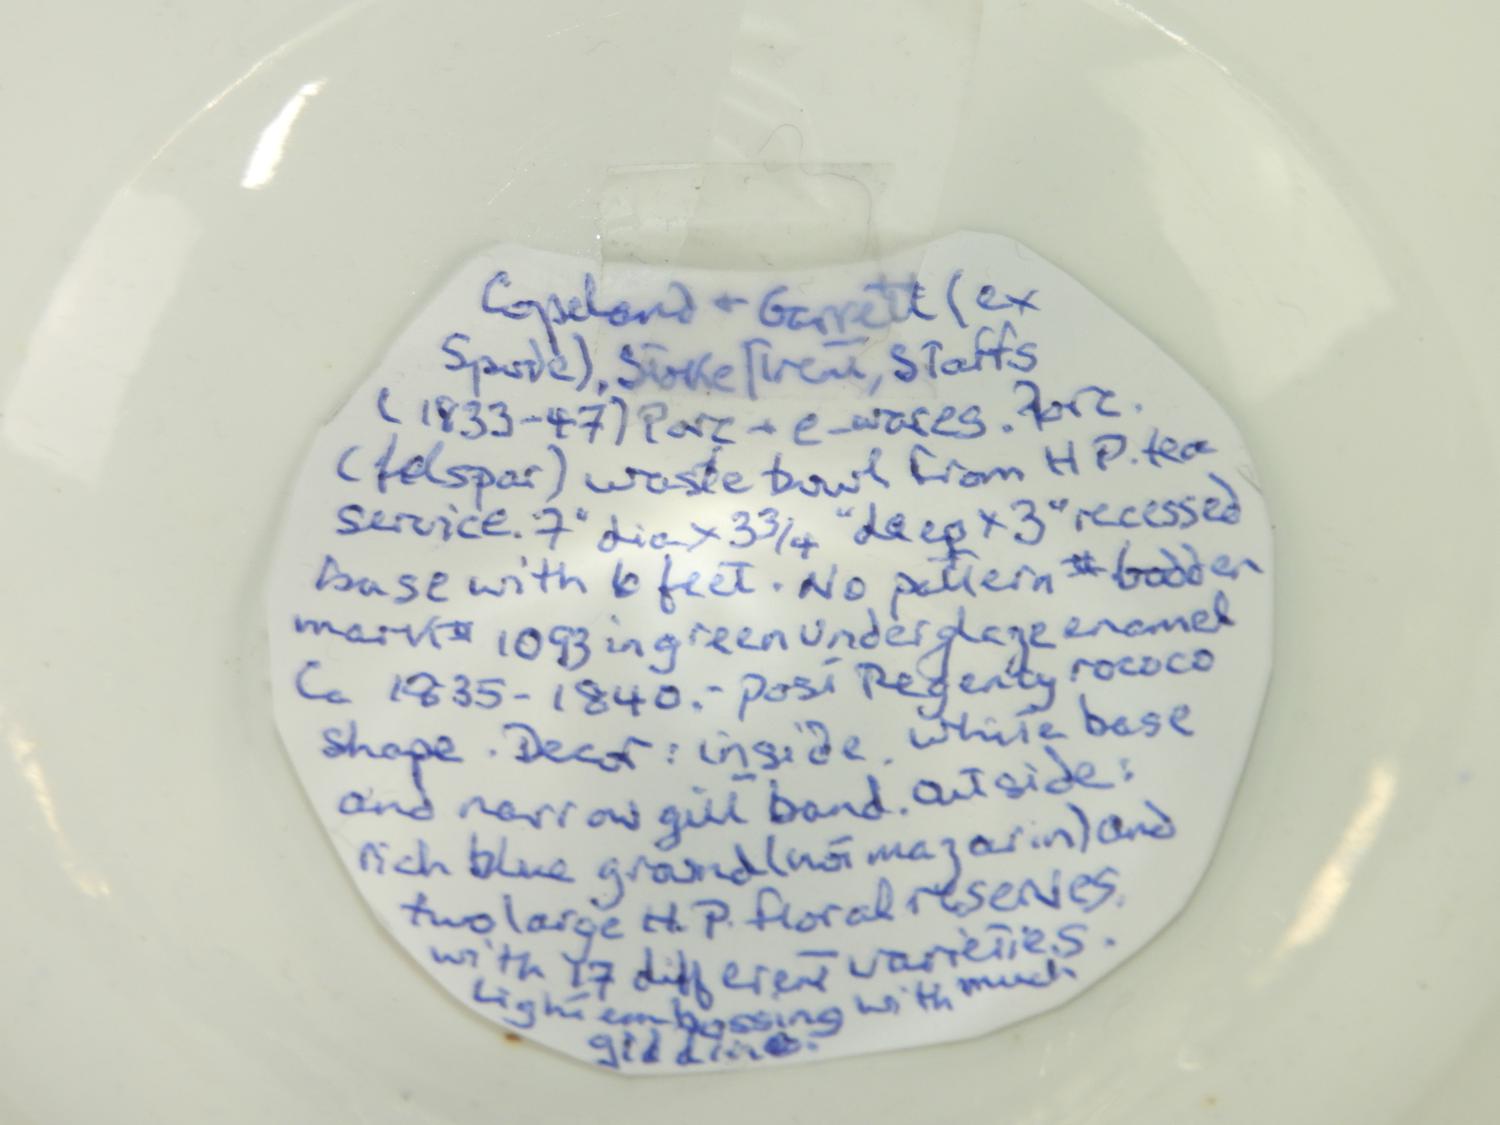 Copeland + Garrett (ex
Spode), Stoke/Trent, Staffs
(1833-47) Porc + e-wares. Porc.
(felspar) waste bowl from H P. tea
service. 7" dia x 3 3/4" deep x 3" recessed
base with 6 feet. No pattern # Godden
mark # 1093 in green underglaze enamel
Ca 1835-1840.- post Regency rococo
shape. Decor: inside. white base
and narrow gilt band. Outside:
rich blue ground (not mazarin) and
two large H. P. floral reserves.
with 17 different varieties.
Light embossing with much
gilding.